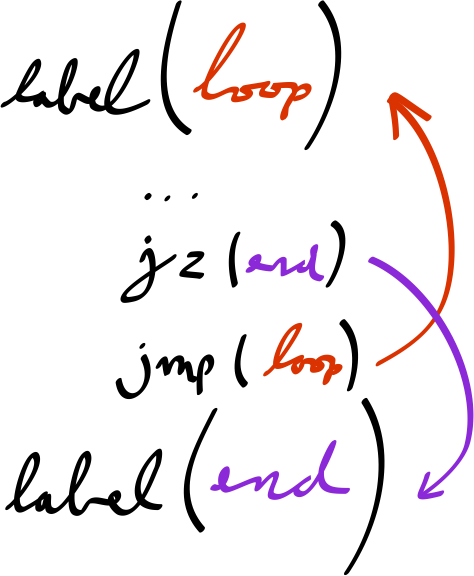 label(loop)
...
jz(end)
jmp(loop)
label(end)